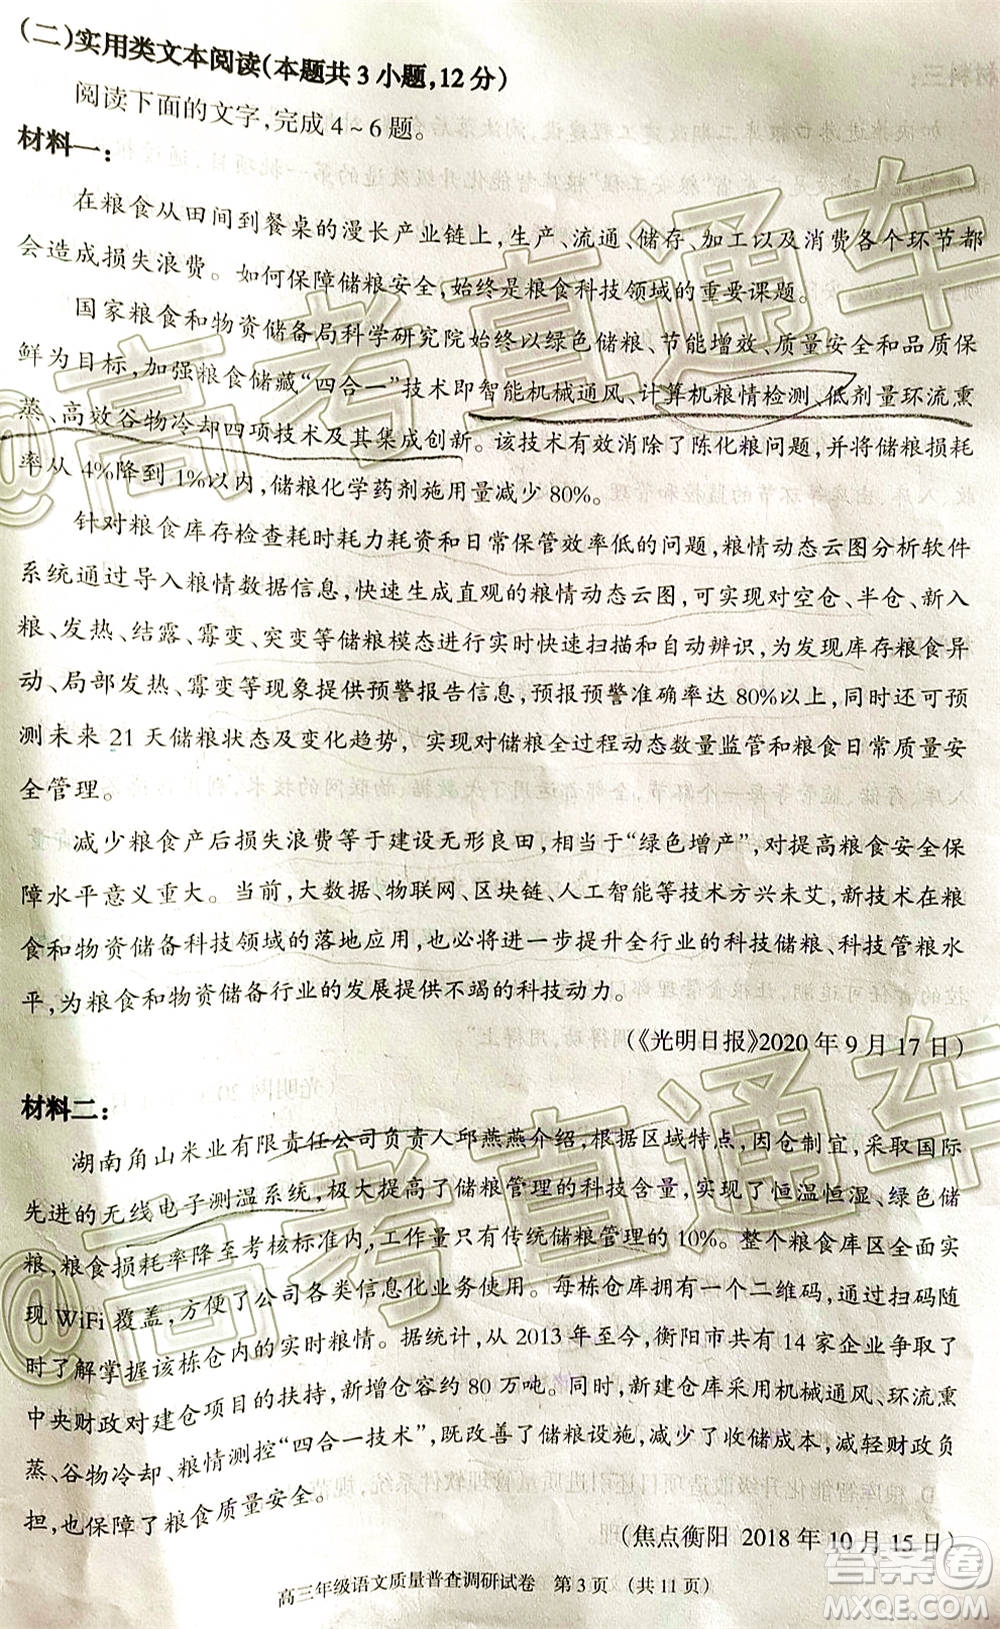 (二)实用类文本阅读(本题共3小题,12分)
阅读下面的文字,完成4~6题。
材料一:
在粮食从田间到餐桌的漫长产业链上,生产、流通、储存、加工以及消费各个环节都
会造成损失浪费。如何保障储粮安全,始终是粮食科技领域的重要课题。
国家粮食和物资储备局科学研究院始终以绿色储粮、节能增效、质量安全和品质保
鲜为目标,加强粮食储藏“四合一”技术即智能机械通风、计算机粮情检测、低剂量环流熏
蒸、高效谷物冷却四项技术及其集成创新。该技术有效消除了陈化粮问题,并将储粮损耗
率从4%降到1%以内,储粮化学药剂施用量减少80%。
针对粮食库存检查耗时耗力耗资和日常保管效率低的问题,粮情动态云图分析软件
系统通过导入粮情数据信息,快速生成直观的粮情动态云图,可实现对空仓、半仓、新入
粮、发热、结露、霉变、突变等储粮模态进行实时快速扫描和自动辨识,为发现库存粮食异
动、局部发热、霉变等现象提供预警报告信息,预报预警准确率达80%以上,同时还可预
测未来21天储粮状态及变化趋势,实现对储粮全过程动态数量监管和粮食日常质量安
全管理。
减少粮食产后损失浪费等于建设无形良田,相当于“绿色增产”,对提高粮食安全保
障水平意义重大。当前,大数据、物联网、区块链、人工智能等技术方兴未艾,新技术在粮
食和物资储备科技领域的落地应用,也必将进一步提升全行业的科技储粮、科技管粮水
平,为粮食和物资储备行业的发展提供不竭的科技动力。
(《光明日报》2020年9月17日)
材料二:
湖南角山米业有限责任公司负责人邱燕燕介绍,根据区域特点,因仓制宜,采取国际
先进的无线电子测温系统,极大提高了储粮管理的科技含量,实现了恒温恒湿、绿色储
粮,粮食损耗率降至考核标准内,工作量只有传统储粮管理的10%。整个粮食库区全面实
现WiFi覆盖,方便了公司各类信息化业务使用。每栋仓库拥有一个二维码,通过扫码随
时了解掌握该栋仓内的实时粮情。据统计,从2013年至今,衡阳市共有14家企业争取了
中央财政对建仓项目的扶持,新增仓容约80万吨。同时,新建仓库采用机械通风、环流熏
蒸、谷物冷却、粮情测控“四合一技术”,既改善了储粮设施,又减少了收储成本,减轻财政负
担,也保障了粮食质量安全。
(焦点衡阳 2018年10月15日)
高三年级语文质量普查调研试卷 第3页 (共11页)
@高考直通车
@高考直通车
答案圈
MXQE.COM